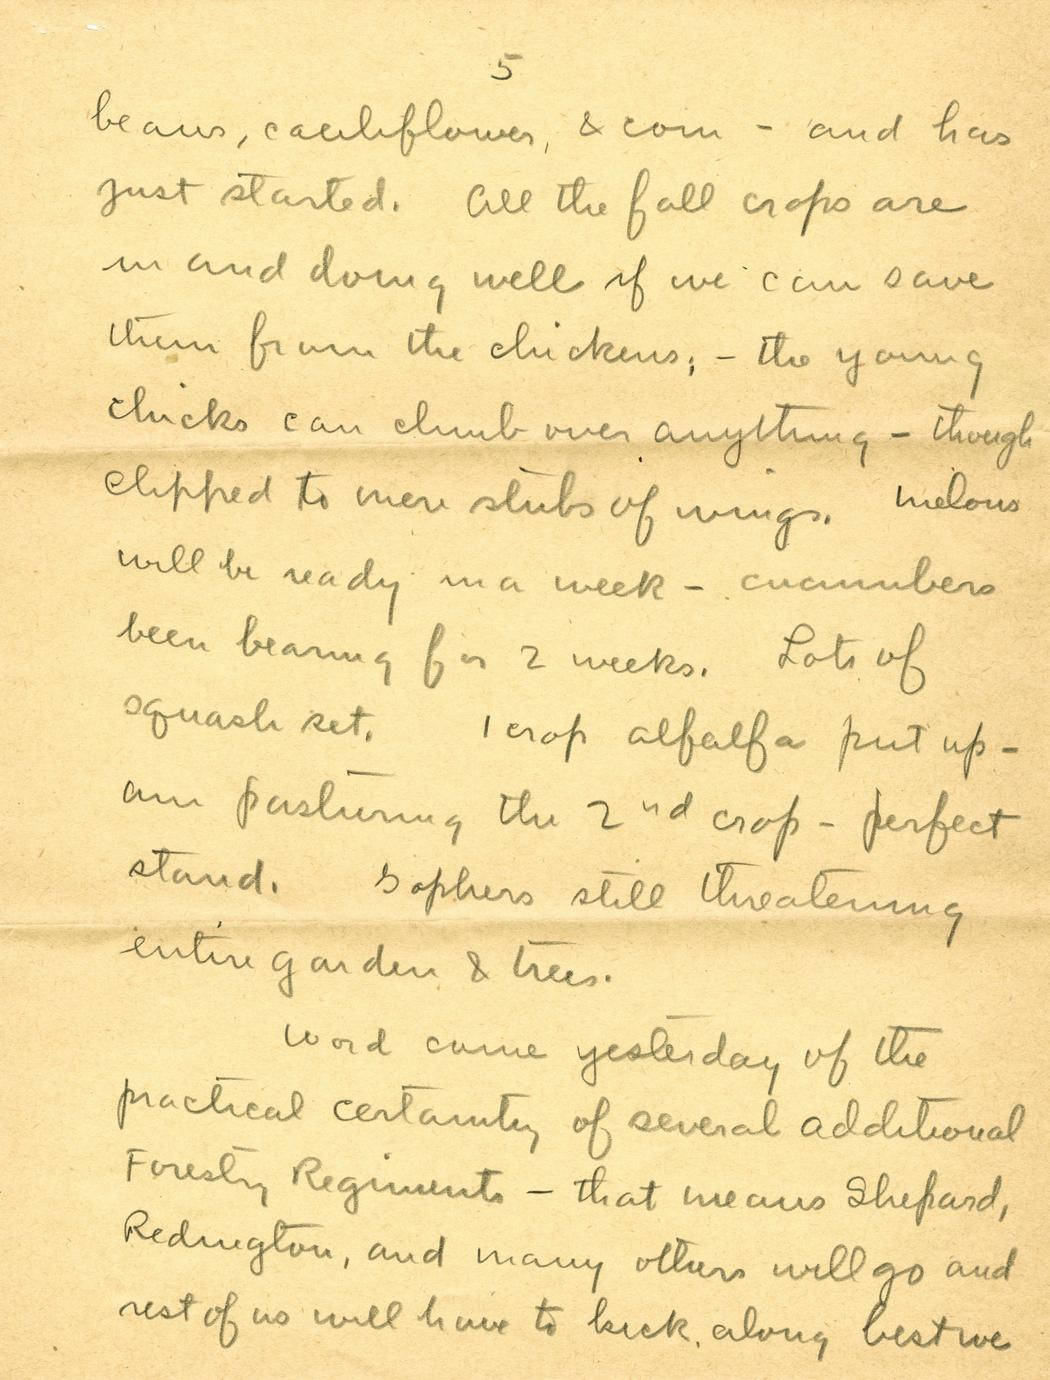 5
beans, cauliflower, & corn - and has
just started. All the fall crops are
in and doing well if we can save
them from the chickens; - the young
chicks can climb over anything - though
clipped to mere stubs of wings. Melons
will be ready in a week - cucumbers
been bearing for 2 weeks. Lots of
squash set. 1 crop alfalfa put up -
am pasturing the 2nd crop - perfect
stand. Gophers still threatening
entire garden & trees.
Word came yesterday of the
practical certainty of several additional
Forestry Regiments - that means Shepard,
Redington, and many others will go and
rest of us will have to kick along best we